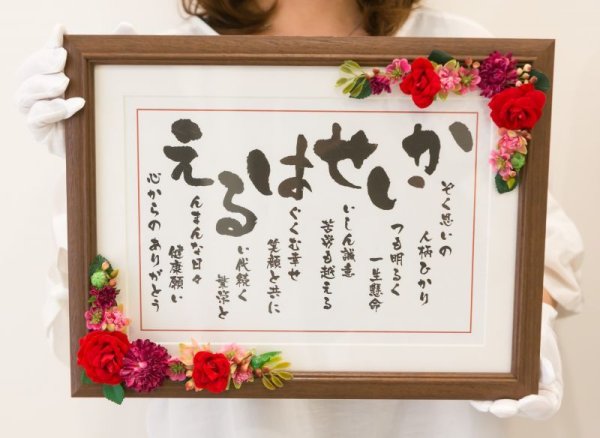 かぞく思いの
人柄ひかり
いつも明るく
一生懸命
せいしん誠意
苦労も越える
はぐくむ幸せ
笑顔と共に
るい代続く
繁栄と
えんまんな日々
健康願い
心からのありがとう